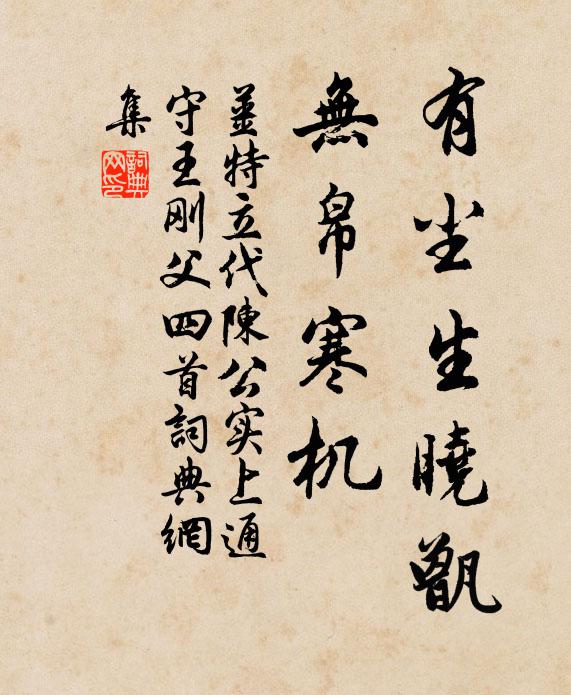 有尘生曉甑
無帛寒机
薑特立代陳公实上通
守王刚父四首詞典網
集
詞典
网印